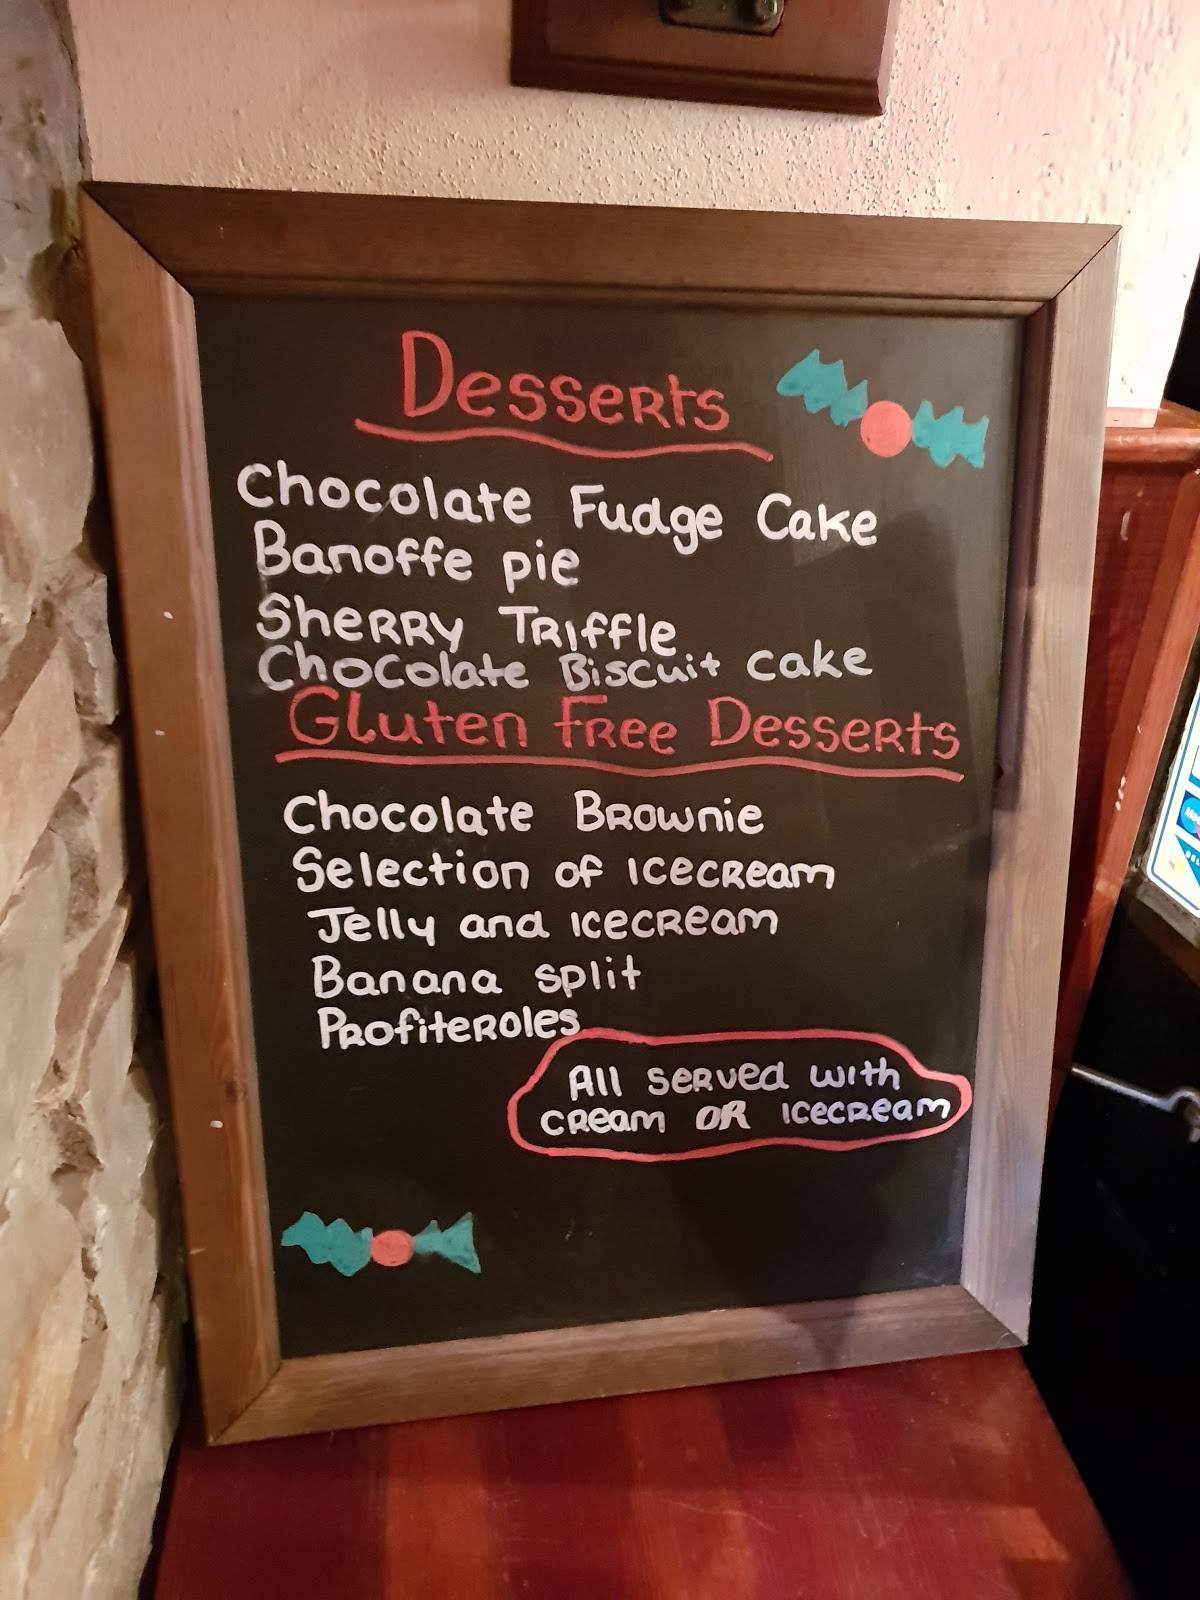 Desserts
Chocolate Fudge Cake
Banoffe pie
Sherry Triffle
Chocolate Biscuit cake
Gluten Free Desserts
Chocolate Brownie
Selection of icecream
Jelly and icecream
Banana split
Profiteroles
All served with
cream or icecream